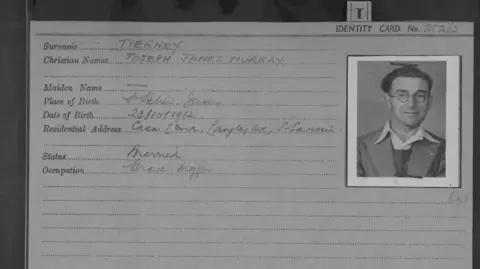 T
IDENTITY CARD No.
Surname TIERNEY
Christian Names JOSEPH JAMES MURRAY
Maiden Name —
Place of Birth St Helier, Jersey
Date of Birth 23/10/1912
Residential Address Casa Langley Ave, St Saviour
Status Married
Occupation Grave Digger